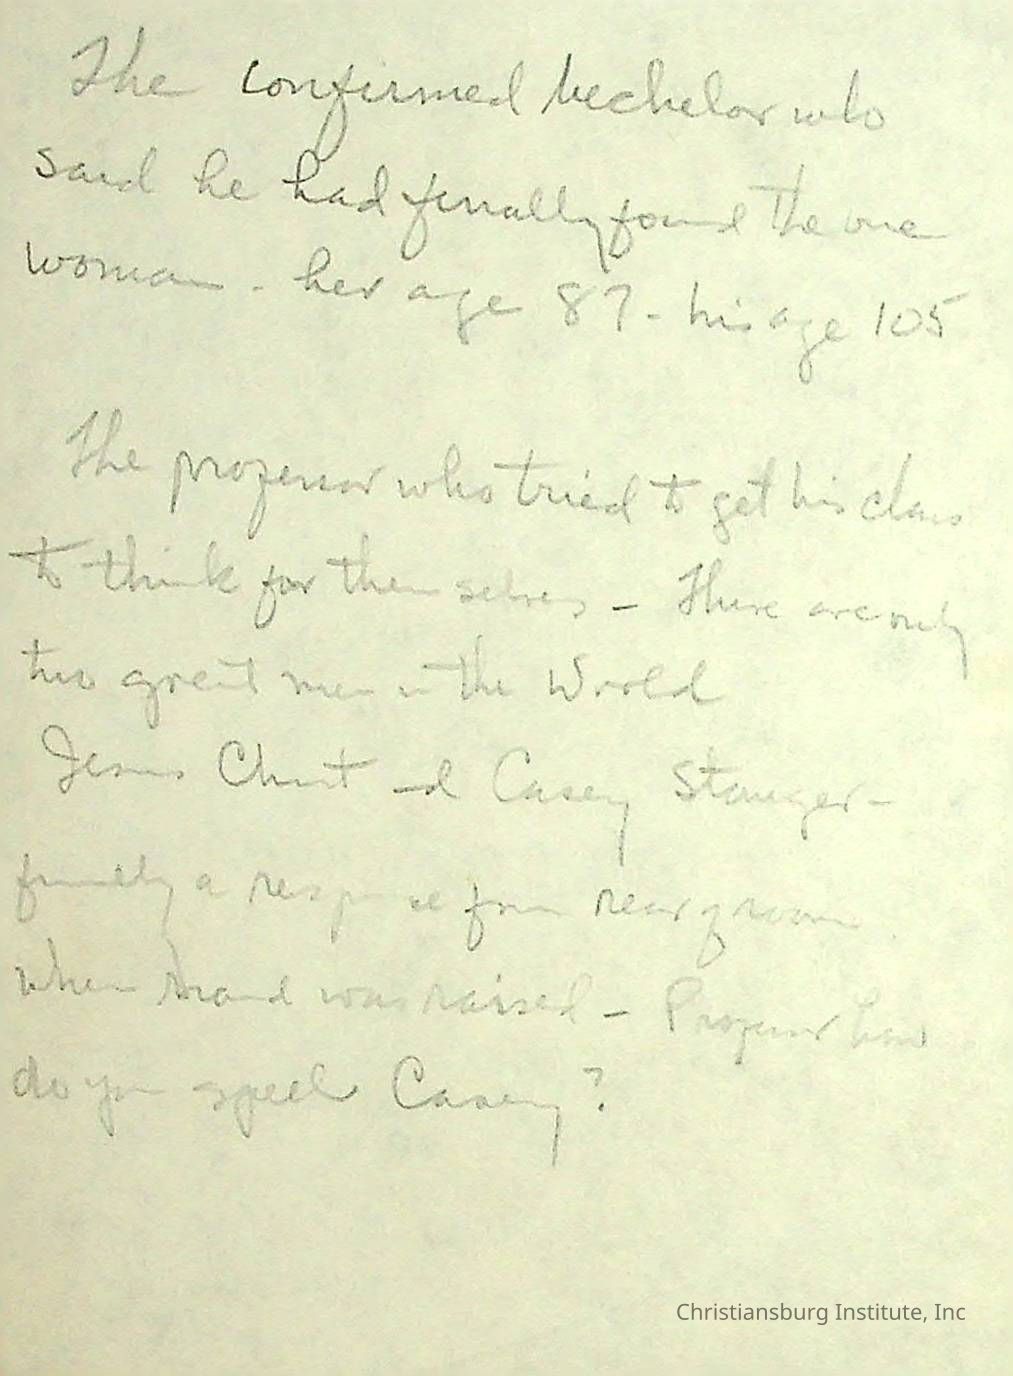 The confirmed bechelor who
said he had finally found the one
woman - her age 87 - his age 105
The professor who tried to get his class
to think for themselves - There are only
two great men in the World
Jesus Christ and Casey Stanger -
finally a response from rear of room
when hand was raised - Professor how
do you spell Casey?
Christiansburg Institute, Inc